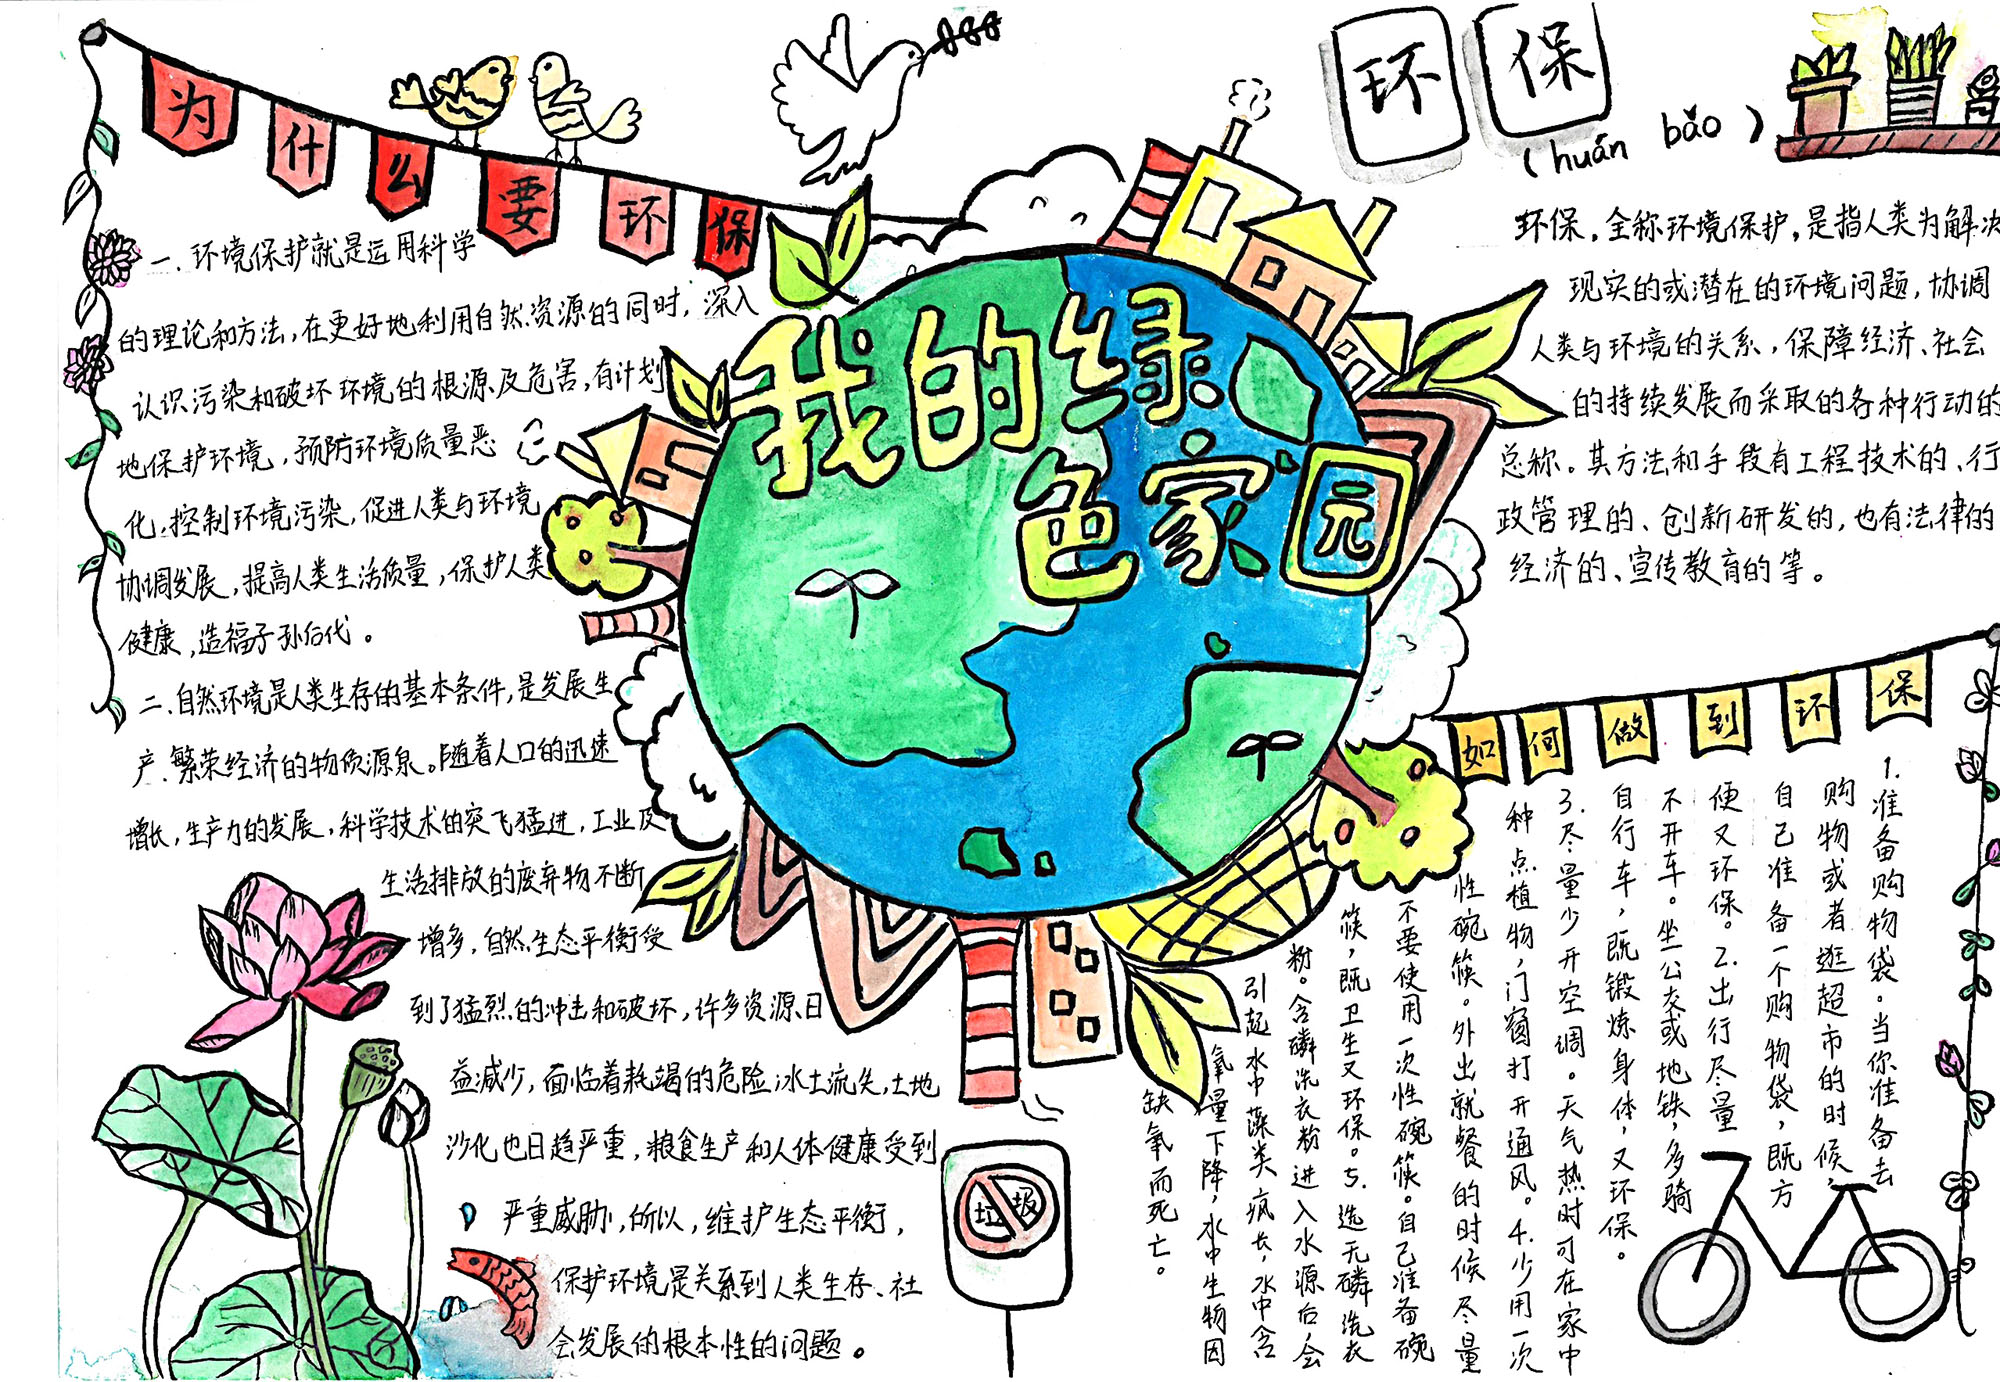 为什么要环保
一.环境保护就是运用科学
的理论和方法,在更好地利用自然资源的同时,深入
认识污染和破坏环境的根源及危害,有计划
地保护环境,预防环境质量恶
化,控制环境污染,促进人类与环境
协调发展,提高人类生活质量,保护人类
健康,造福子孙后代。
二.自然环境是人类生存的基本条件,是发展生
产、繁荣经济的物质源泉。随着人口的迅速
增长,生产力的发展,科学技术的突飞猛进,工业及
生活排放的废弃物不断
增多,自然生态平衡受
到了猛烈的冲击和破坏,许多资源日
益减少,面临着耗竭的危险水土流失,土地
沙化也日趋严重,粮食生产和人体健康受到
严重威胁,所以,维护生态平衡,
保护环境是关系到人类生存、社
会发展的根本性的问题。
我的绿
色家园
垃圾
环保
(huán bǎo)
环保,全称环境保护,是指人类为解决
现实的或潜在的环境问题,协调
人类与环境的关系,保障经济、社会
的持续发展而采取的各种行动的
总称。其方法和手段有工程技术的、行
政管理的、创新研发的,也有法律的
经济的、宣传教育的等。
如何做到环保
1.准备购物袋。当你准备去
购物或者逛超市的时候,
自己准备一个购物袋,既方
便又环保。2.出行尽量
不开车。坐公交或地铁,多骑
自行车,既锻炼身体,又环保。
3.尽量少开空调。天气热时可在家中
种点植物,门窗打开通风。4.少用一次
性碗筷。外出就餐的时候尽量
不要使用一次性碗筷。自己准备碗
筷,既卫生又环保。5.选无磷洗衣
粉。含磷洗衣粉进入水源后会
引起水中藻类疯长,水中含
氧量下降,水中生物因
缺氧而死亡。